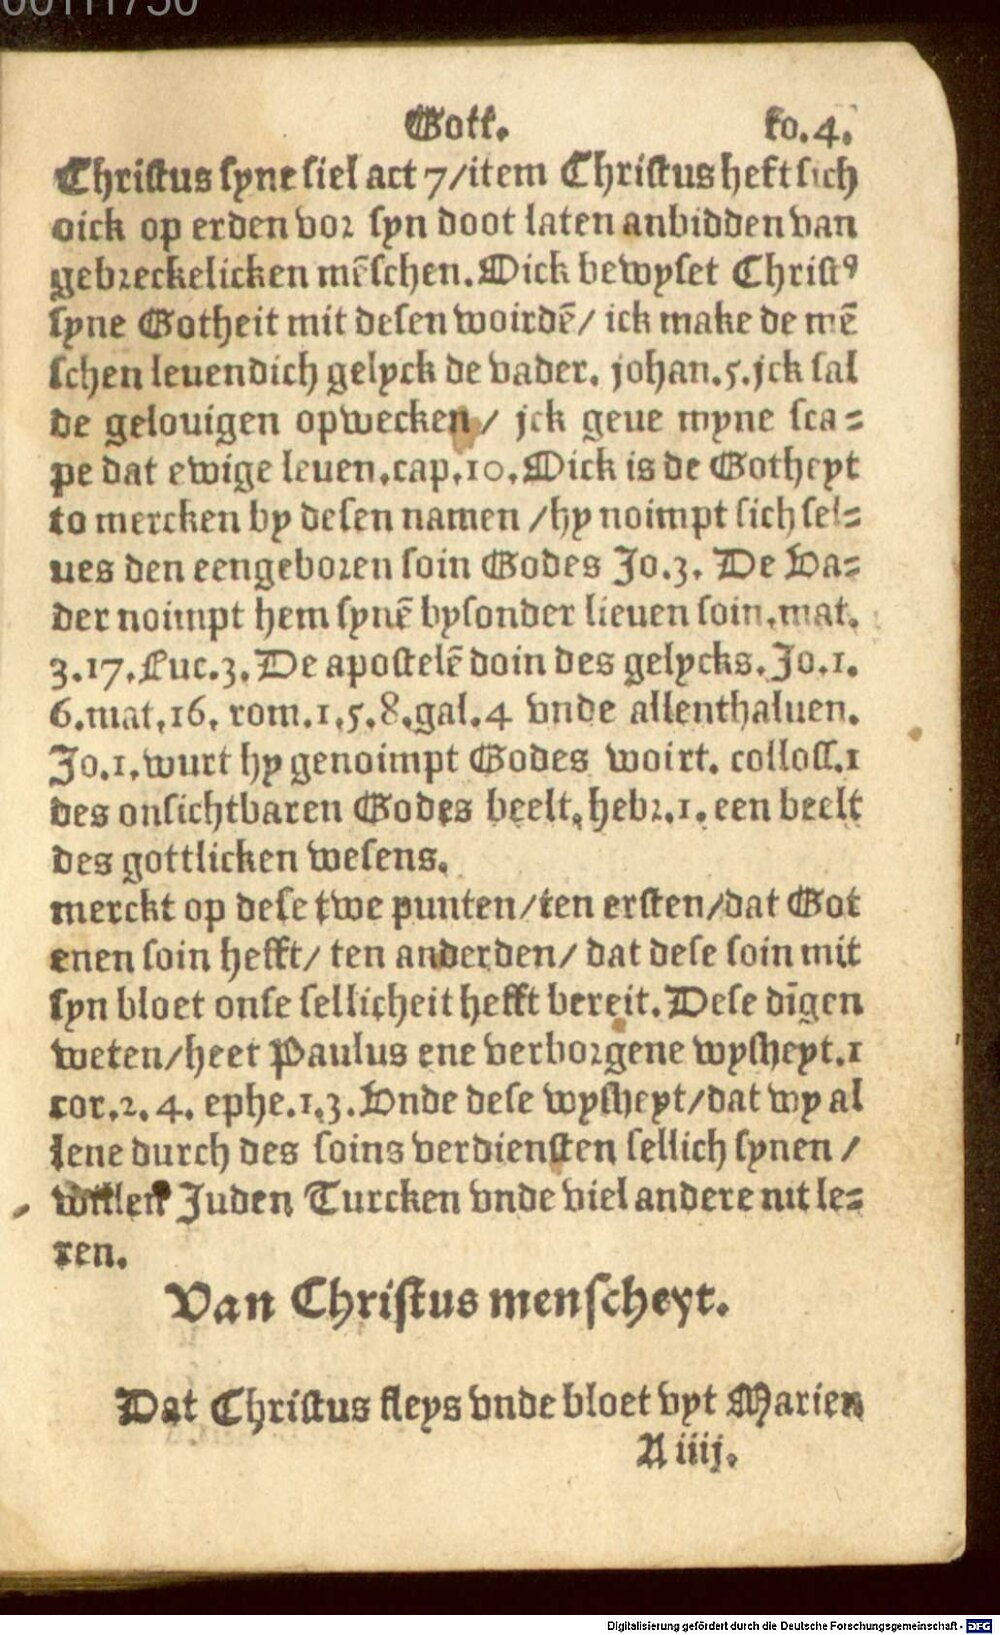 00111750
Gott. fo. 4.
Christus syne siel act 7/item Christus heft sich
oick op erden vor syn doot laten anbidden van
gebreckelicken mẽschen. Oick bewyset Christꝰ
syne Gotheit mit desen woirdẽ/ ick make de mẽ
schen leuendich gelyck de vader. johan.5.jck sal
de gelouigen opwecken/ jck geue myne sca=
pe dat ewige leuen.cap.10. Oick is de Gotheyt
to mercken by desen namen /hy noimpt sich sel=
ues den eengeboren soin Godes Jo.3. De Va=
der noimpt hem synẽ bysonder lieuen soin.mat.
3.17.Luc.3. De apostelẽ doin des gelycks. Jo.1.
6.mat.16. rom.1.5.8.gal.4 vnde allenthaluen.
Jo.1.wurt hy genoimpt Godes woirt. coloss.1
des onsichtbaren Godes beelt. hebr.1. een beelt
des gottlicken wesens.
merckt op dese twe punten/ten ersten/dat Got
enen soin hefft/ ten anderden/ dat dese soin mit
syn bloet onse sellicheit hefft bereit. Dese dĩgen
weten/heet Paulus ene verborgene wysheyt.1
cor.2. 4. ephe.1.3. Vnde dese wysheyt/dat wy al
lene durch des soins verdiensten sellich synen /
willen Juden Turcken vnde viel andere nit le=
ren.
Van Christus menscheyt.
Dat Christus fleys vnde bloet vyt Marien
A iiij.
Digitalisierung gefördert durch die Deutsche Forschungsgemeinschaft - DFG